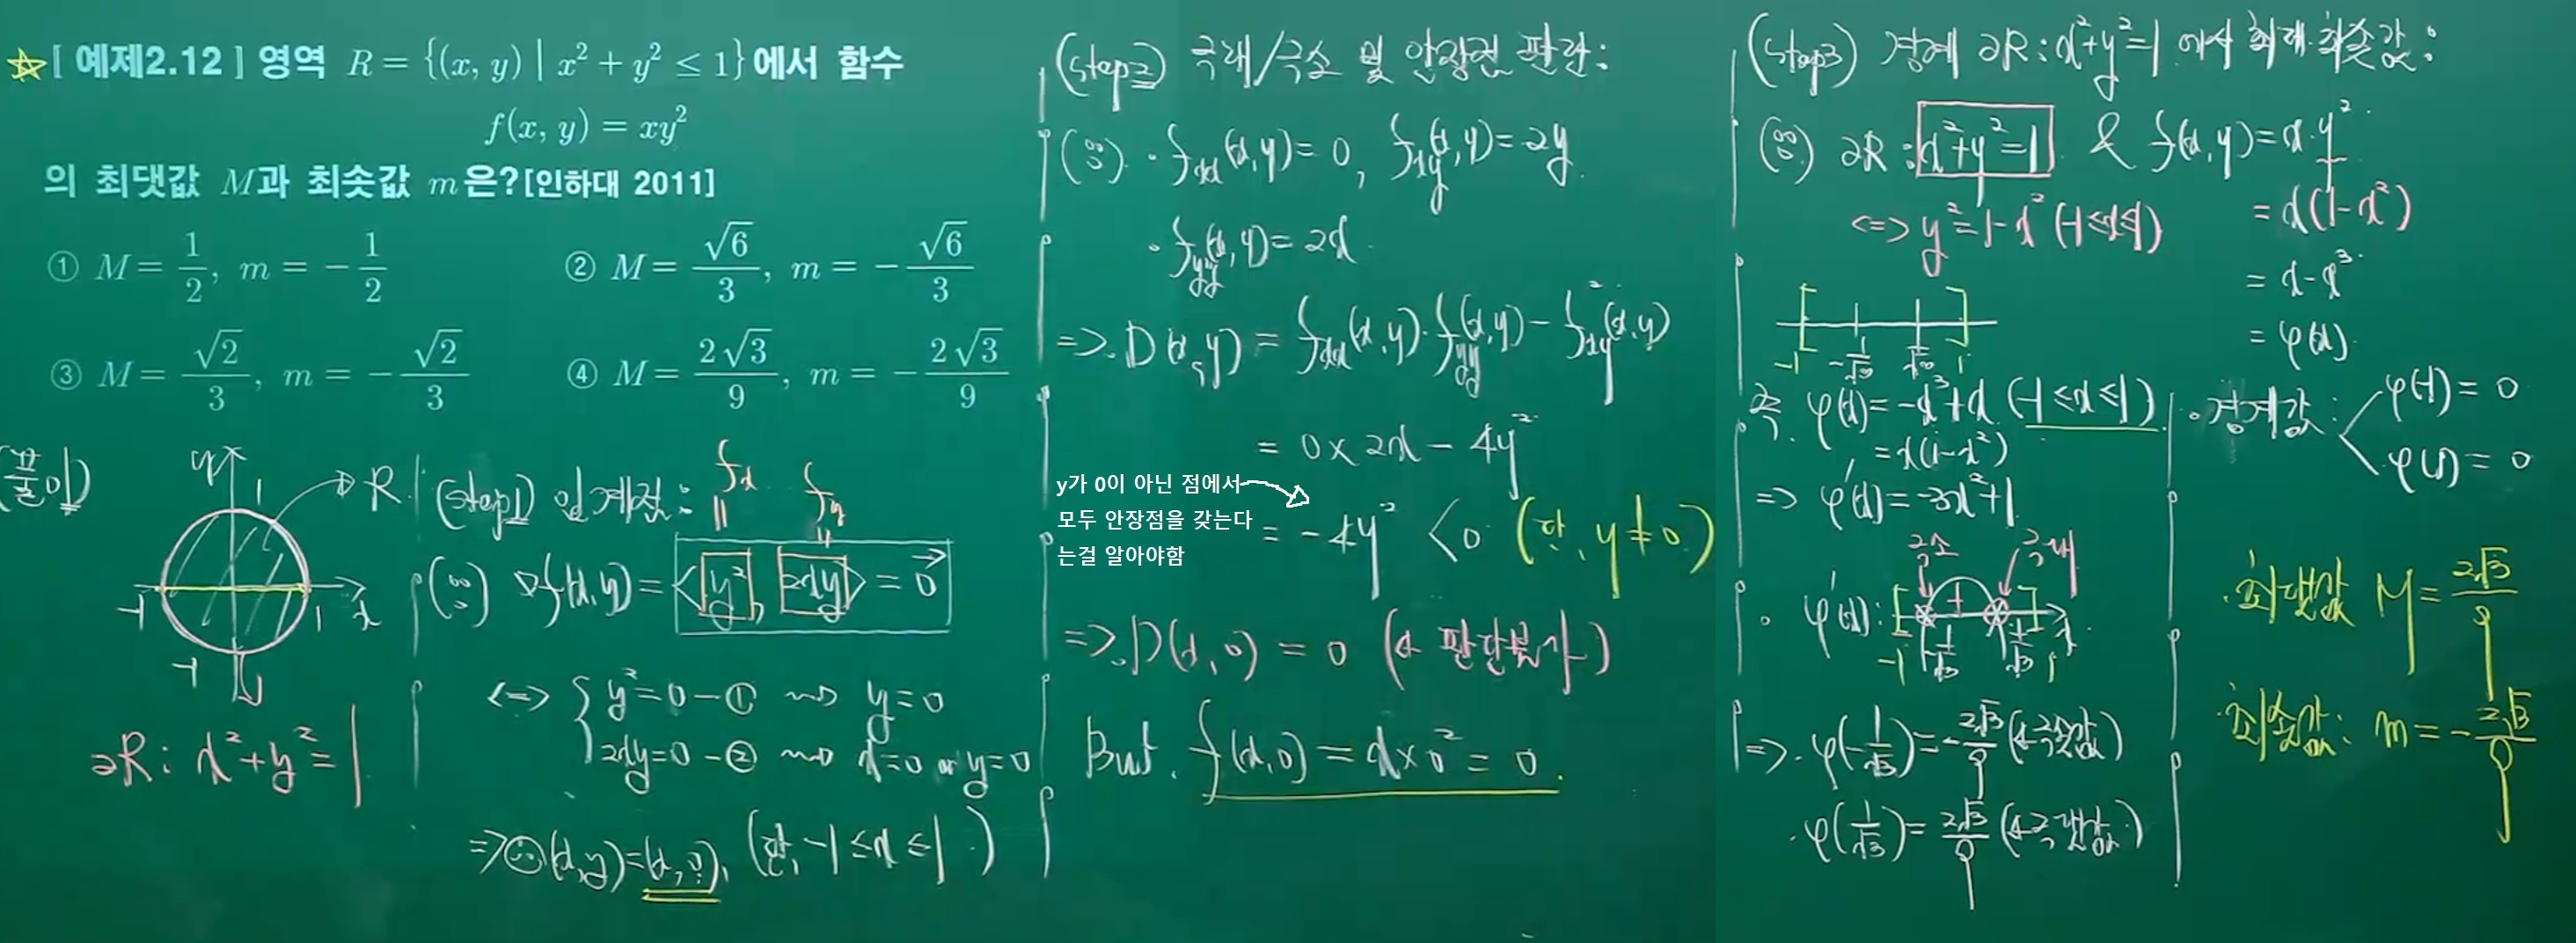 [ 예제2.12 ] 영역 R = {(x, y) | x² + y² ≤ 1}에서 함수
f(x, y) = xy²
의 최댓값 M과 최솟값 m은?[인하대 2011]
① M = 1/2, m = -1/2
② M = √6/3, m = -√6/3
③ M = √2/3, m = -√2/3
④ M = 2√3/9, m = -2√3/9
(풀이)
y
1
R
-1
1
x
-1
∂R: x²+y²=1
(step1) 임계점:
f_x
f_y
(∵) ∇f(x,y) = <y², 2xy> = 0⃗
<=> { y²=0 - ① ⇝ y=0
2xy=0 - ② ⇝ x=0 or y=0
=> ∴ (x,y)=(x,0), (단, -1≤x≤1)
(step2) 극대/극소 및 안장점 판단:
(∵) · f_xx(x,y)=0, f_xy(x,y)=2y
· f_yy(x,y)=2x
=>. D(x,y) = f_xx(x,y)·f_yy(x,y) - f_xy²(x,y)
= 0×2x - 4y²
y가 0이 아닌 점에서
모두 안장점을 갖는다
는걸 알아야함
= -4y² <0 (단, y≠0)
=>. D(x,0) = 0 (← 판단불가)
But. f(x,0) = x×0² = 0.
(step3) 경계 ∂R: x²+y²=1 에서 최대·최솟값:
(∵) ∂R: x²+y²=1 & f(x,y)=x·y²
<=> y²=1-x² (-1≤x≤1)
= x(1-x²)
= x-x³
= φ(x)
-1
-1/√3
1/√3
1
즉. φ(x)=-x³+x (-1≤x≤1)
= x(1-x²)
=> φ'(x)=-3x²+1
· φ'(x):
극소
극대
+
-1
-1/√3
1/√3
1
x
=>. φ(-1/√3)=-2√3/9 (← 극솟값)
· φ(1/√3)=2√3/9 (← 극댓값)
· 경계값:
φ(-1)=0
φ(1)=0
· 최댓값 M=2√3/9
· 최솟값: m=-2√3/9